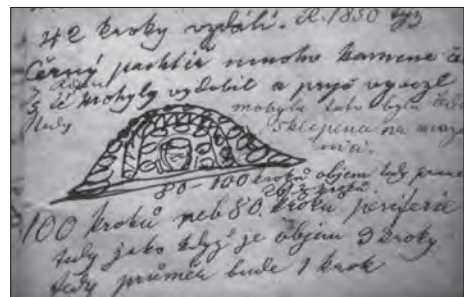 42 kroky vzdálí. R. 1850 tyz
Černý pachtíř mnoho kamene
z té mohyly vydobil a pryč vyvezl
tedy mohyla tato byla
sklepena na
80-100 kroků objem tedy
100 kroků neb 80 kroků periferie
tedy jako když je objem 3 kroky
tedy průměr bude 1 krok